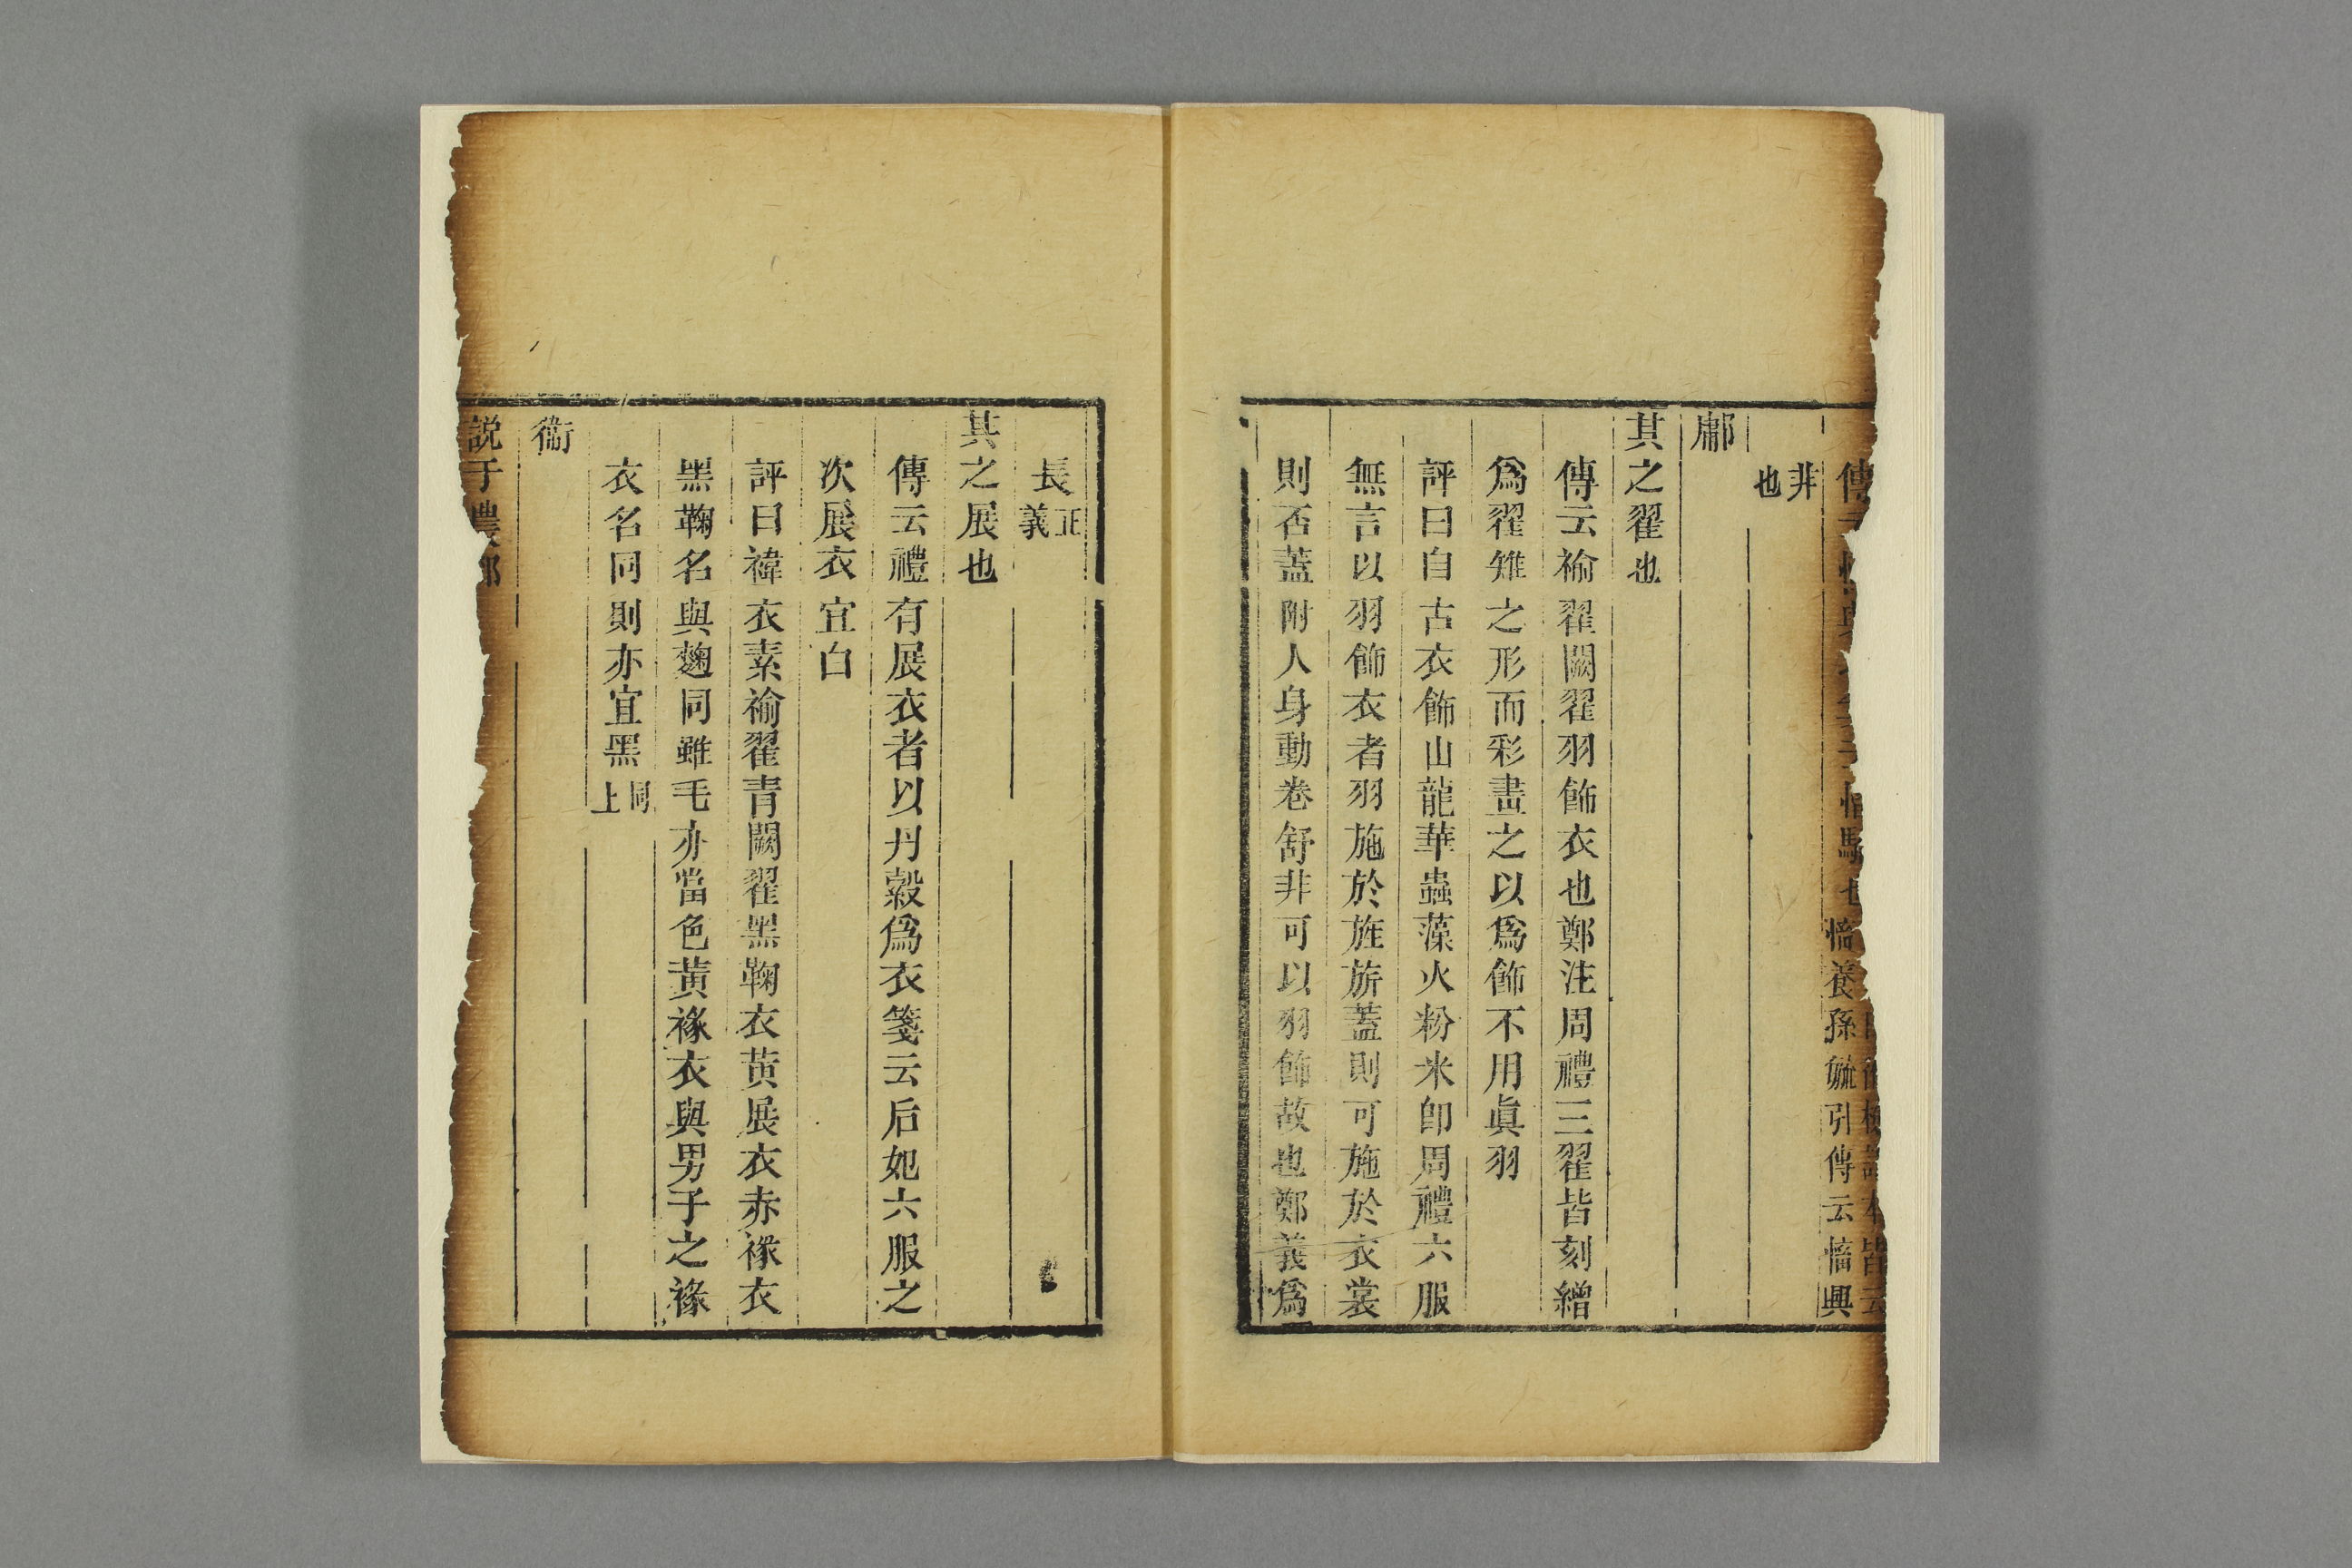 傳云 慉養孫毓引傳云慉興
本皆云
非也
鄘
其之翟也
傳云褕翟闕翟羽飾衣也鄭注周禮三翟皆刻繒
爲翟雉之形而彩畫之以爲飾不用眞羽
評曰自古衣飾山龍華蟲藻火粉米卽周禮六服
無言以羽飾衣者羽施於旌旂蓋則可施於衣裳
則否蓋附人身動卷舒非可以羽飾故也鄭義爲
長正義
其之展也
傳云禮有展衣者以丹縠爲衣箋云后妃六服之
次展衣宜白
評曰褘衣素褕翟青闕翟黑鞠衣黄展衣赤褖衣
黑鞠名與麴同雖毛亦當色黃褖衣與男子之褖
衣名同則亦宜黑同上
衞
説于農郊